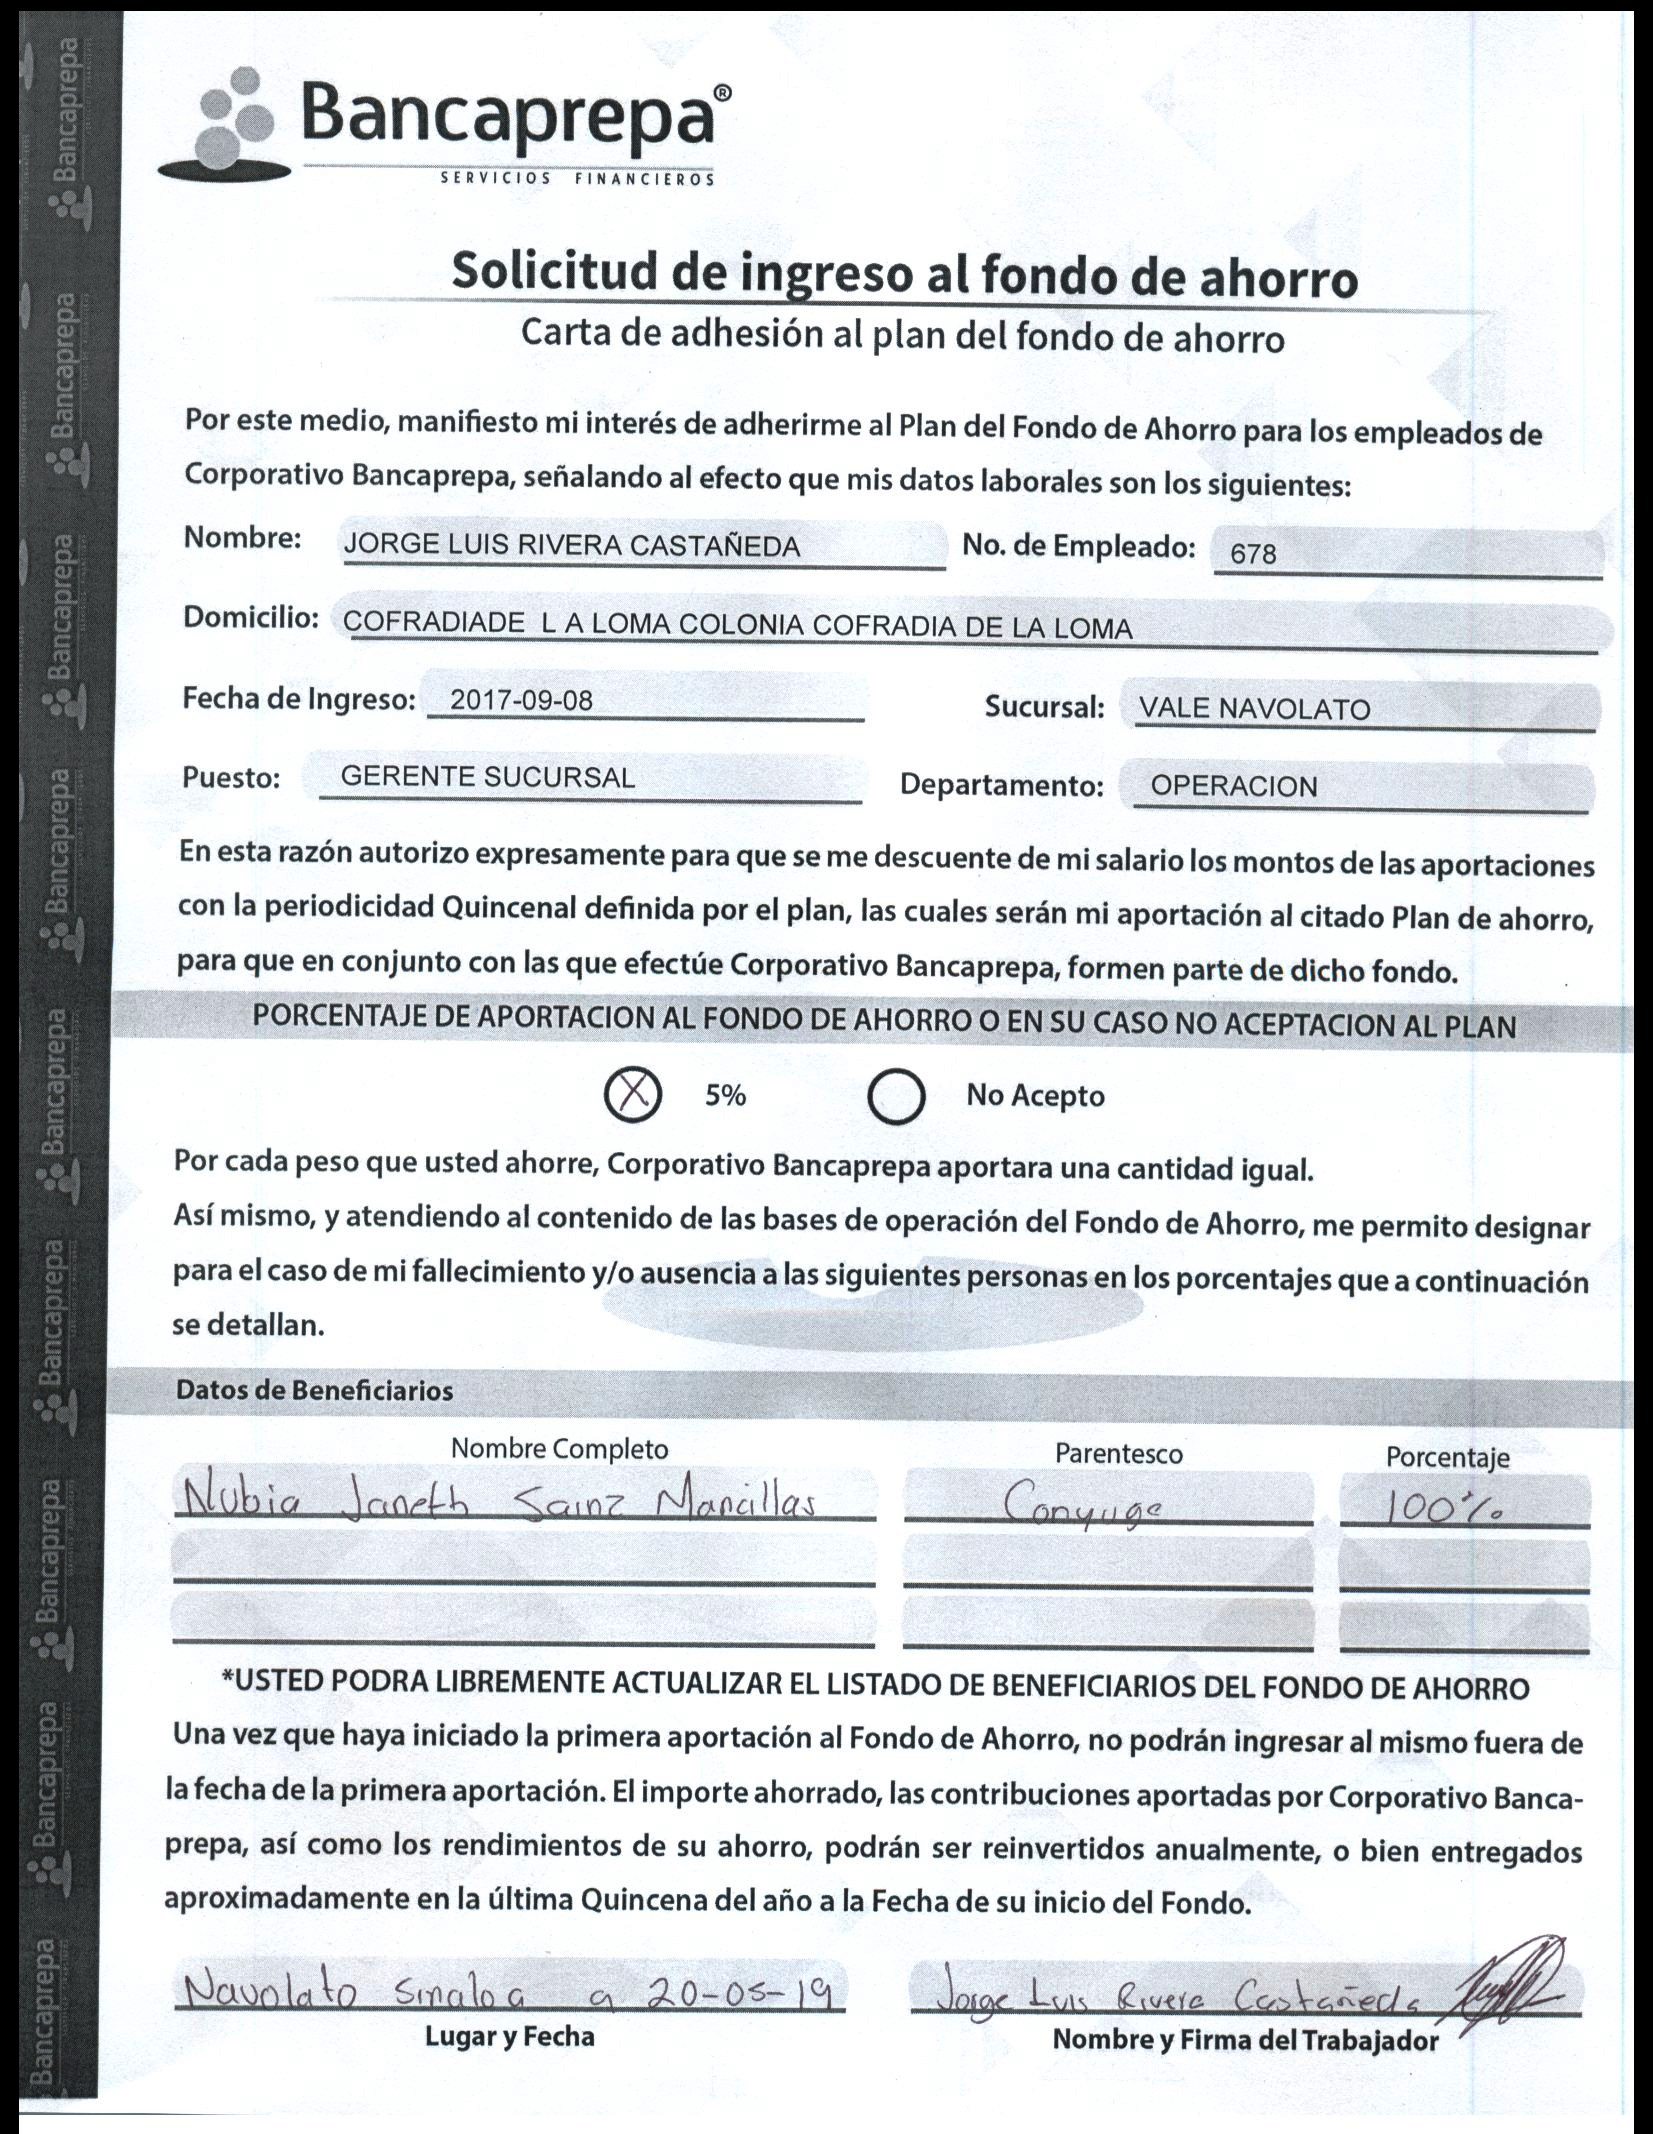 Bancaprepa®
SERVICIOS FINANCIEROS
Solicitud de ingreso al fondo de ahorro
Carta de adhesión al plan del fondo de ahorro
Por este medio, manifiesto mi interés de adherirme al Plan del Fondo de Ahorro para los empleados de
Corporativo Bancaprepa, señalando al efecto que mis datos laborales son los siguientes:
Nombre: JORGE LUIS RIVERA CASTAÑEDA No. de Empleado: 678
Domicilio: COFRADIADE L A LOMA COLONIA COFRADIA DE LA LOMA
Fecha de Ingreso: 2017-09-08 Sucursal: VALE NAVOLATO
Puesto: GERENTE SUCURSAL Departamento: OPERACION
En esta razón autorizo expresamente para que se me descuente de mi salario los montos de las aportaciones
con la periodicidad Quincenal definida por el plan, las cuales serán mi aportación al citado Plan de ahorro,
para que en conjunto con las que efectúe Corporativo Bancaprepa, formen parte de dicho fondo.
PORCENTAJE DE APORTACION AL FONDO DE AHORRO O EN SU CASO NO ACEPTACION AL PLAN
X 5% No Acepto
Por cada peso que usted ahorre, Corporativo Bancaprepa aportara una cantidad igual.
Así mismo, y atendiendo al contenido de las bases de operación del Fondo de Ahorro, me permito designar
para el caso de mi fallecimiento y/o ausencia a las siguientes personas en los porcentajes que a continuación
se detallan.
Datos de Beneficiarios
Nombre Completo Parentesco Porcentaje
Nubia Janeth Sainz Mancillas Conyuge 100%
*USTED PODRA LIBREMENTE ACTUALIZAR EL LISTADO DE BENEFICIARIOS DEL FONDO DE AHORRO
Una vez que haya iniciado la primera aportación al Fondo de Ahorro, no podrán ingresar al mismo fuera de
la fecha de la primera aportación. El importe ahorrado, las contribuciones aportadas por Corporativo Banca-
prepa, así como los rendimientos de su ahorro, podrán ser reinvertidos anualmente, o bien entregados
aproximadamente en la última Quincena del año a la Fecha de su inicio del Fondo.
Navolato Sinaloa a 20-05-19 Jorge Luis Rivera Castañeda
Lugar y Fecha Nombre y Firma del Trabajador
Bancaprepa
Bancaprepa
Bancaprepa
Bancaprepa
Bancaprepa
Bancaprepa
Bancaprepa
Bancaprepa
Bancaprepa